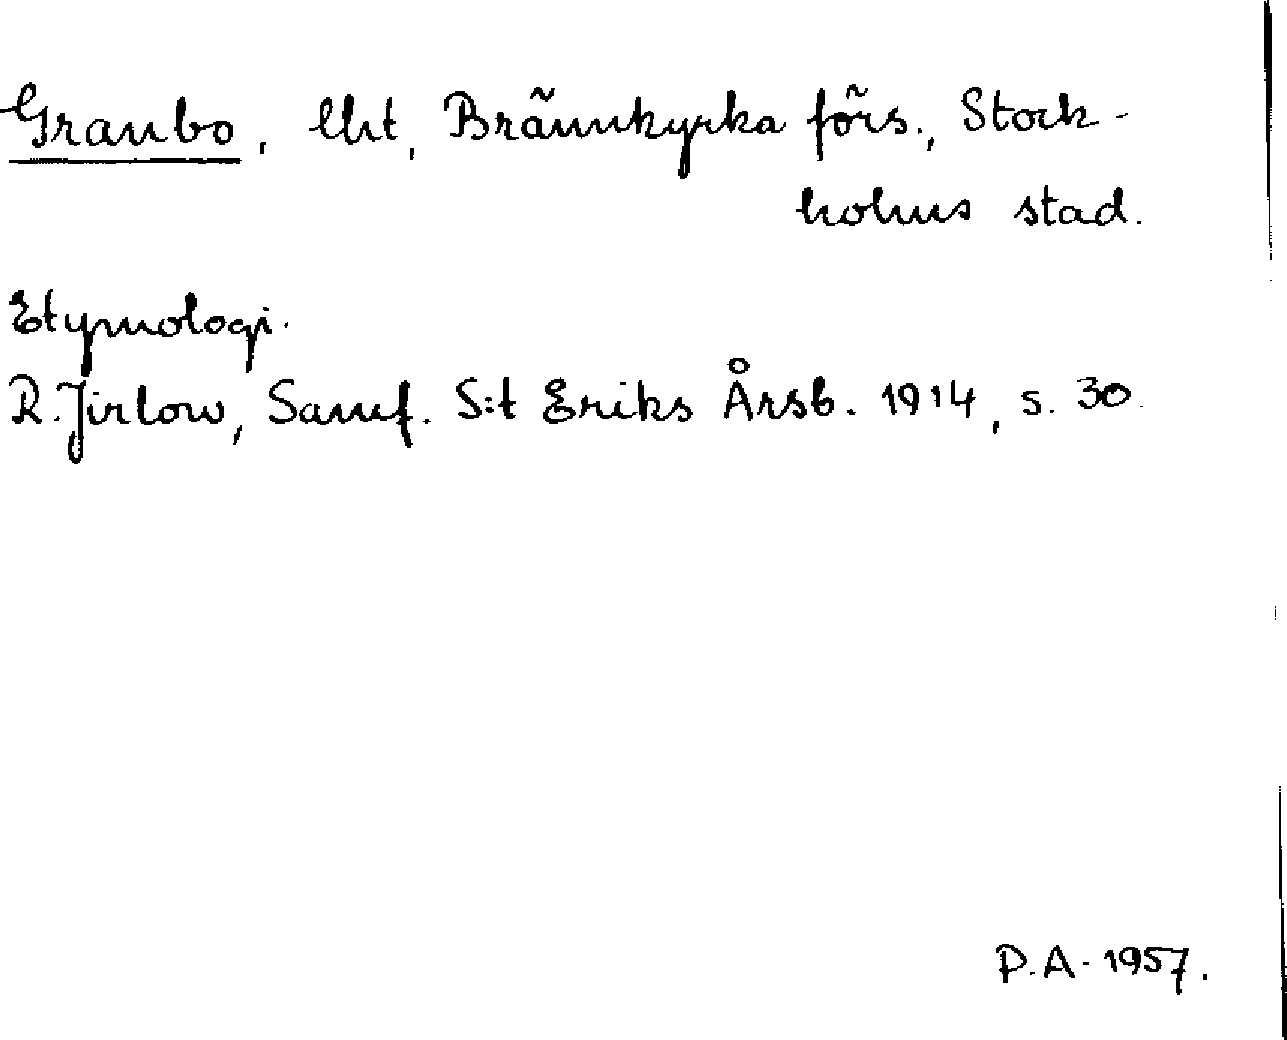 Granbo, lht, Brännkyrka förs., Stock-
holms stad.
Etymologi.
R. Jirlow, Samf. S:t Eriks Årsb. 1914, s. 30.
P.A. 1957.